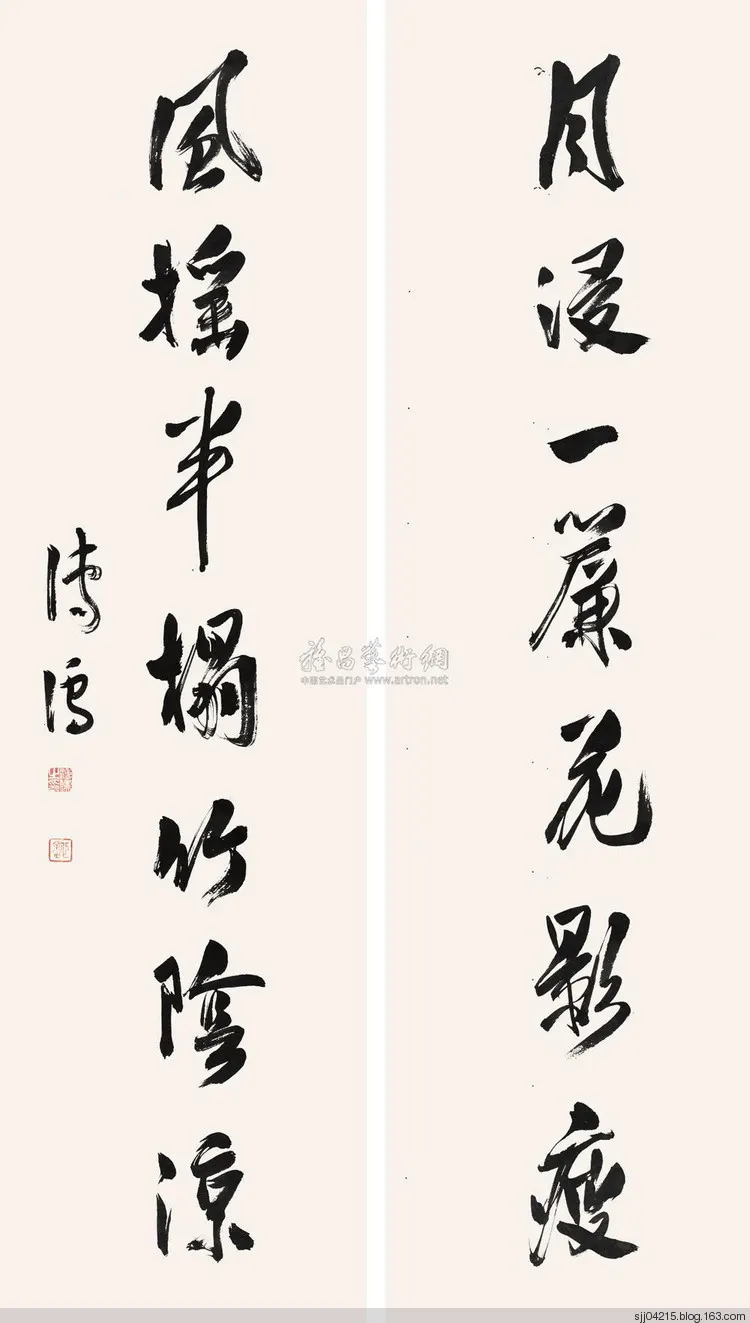 月浸一簾花影瘦
風摇半榻竹陰涼
溥儒
雅昌藝術網
中国艺术品门户 www.artron.net
sjj04215.blog.163.com